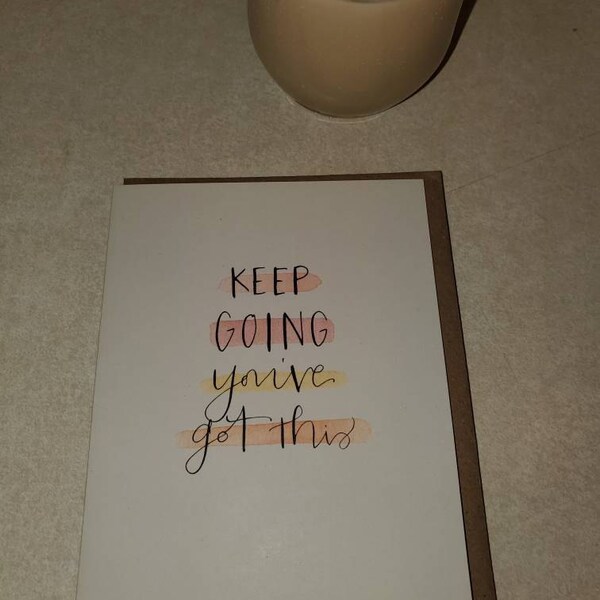 KEEP
GOING
you've
got this